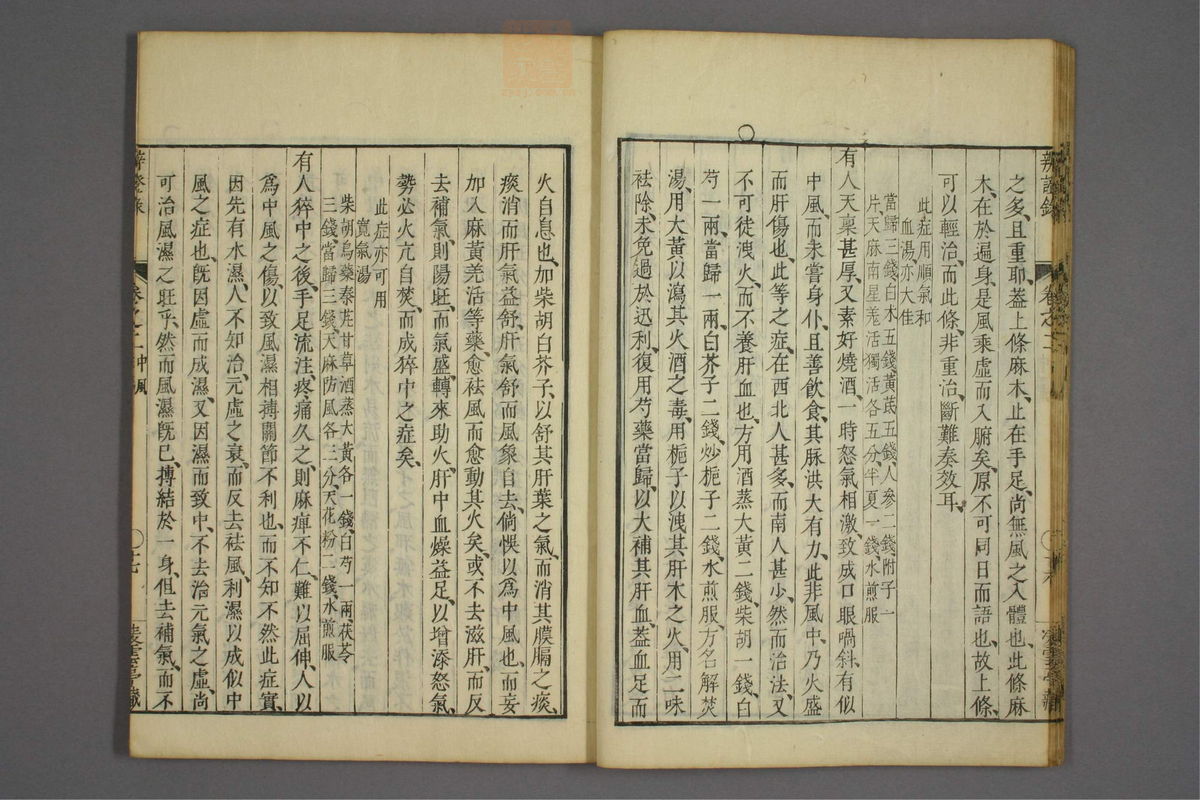 之多且重耶、蓋上條麻木、止在手足、尚無風之入體也、此條麻
木、在於遍身、是風乘虛而入腑矣、原不可同日而語也、故上條、
可以輕治、而此條、非重治、斷難奏效耳、
此症用順氣和
血湯、亦大佳
當歸三錢、白朮五錢、黃芪五錢、人參二錢、附子一
片、天麻南星羌活獨活各五分、半夏一錢、水煎服
有人天稟甚厚、又素好燒酒、一時怒氣相激、致成口眼喎斜、有似
中風、而未嘗身仆、且善飲食、其脉洪大有力、此非風中、乃火盛
而肝傷也、此等之症、在西北人甚多、而南人甚少、然而治法、又
不可徒洩火、而不養肝血也、方用酒蒸大黃二錢、柴胡一錢、白
芍一兩、當歸一兩、白芥子二錢、炒梔子二錢、水煎服、方名解焚
湯、用大黃以瀉其火酒之毒、用梔子以洩其肝木之火、用二味
祛除、未免過於迅利、復用芍藥當歸、以大補其肝血、蓋血足而
火自息也、加柴胡白芥子、以舒其肝葉之氣、而消其膜膈之痰、
痰消而肝氣益舒、肝氣舒而風象自去、倘悞以爲中風也、而妄
加入麻黃羌活等藥、愈祛風而愈動其火矣、或不去滋肝、而反
去補氣、則陽旺、而氣盛、轉來助火、肝中血燥、益足以增添怒氣、
勢必火亢自焚、而成猝中之症矣、
此症亦可用
寬氣湯
柴胡烏藥秦艽甘草酒蒸大黃各一錢、白芍一兩、茯苓
三錢、當歸三錢、天麻防風各三分、天花粉二錢、水煎服
有人猝中之後、手足流注、疼痛久之、則麻痺不仁、難以屈伸、人以
爲中風之傷、以致風濕相搏、關節不利也、而不知不然、此症實、
因先有水濕、人不知治、元虛之衰、而反去祛風、利濕以成似中
風之症也、旣因虛而成濕、又因濕而致中、不去治元氣之虛、尚
可治風濕之旺乎、然而風濕旣已、搏結於一身、但去補氣、而不
卷之二 中風